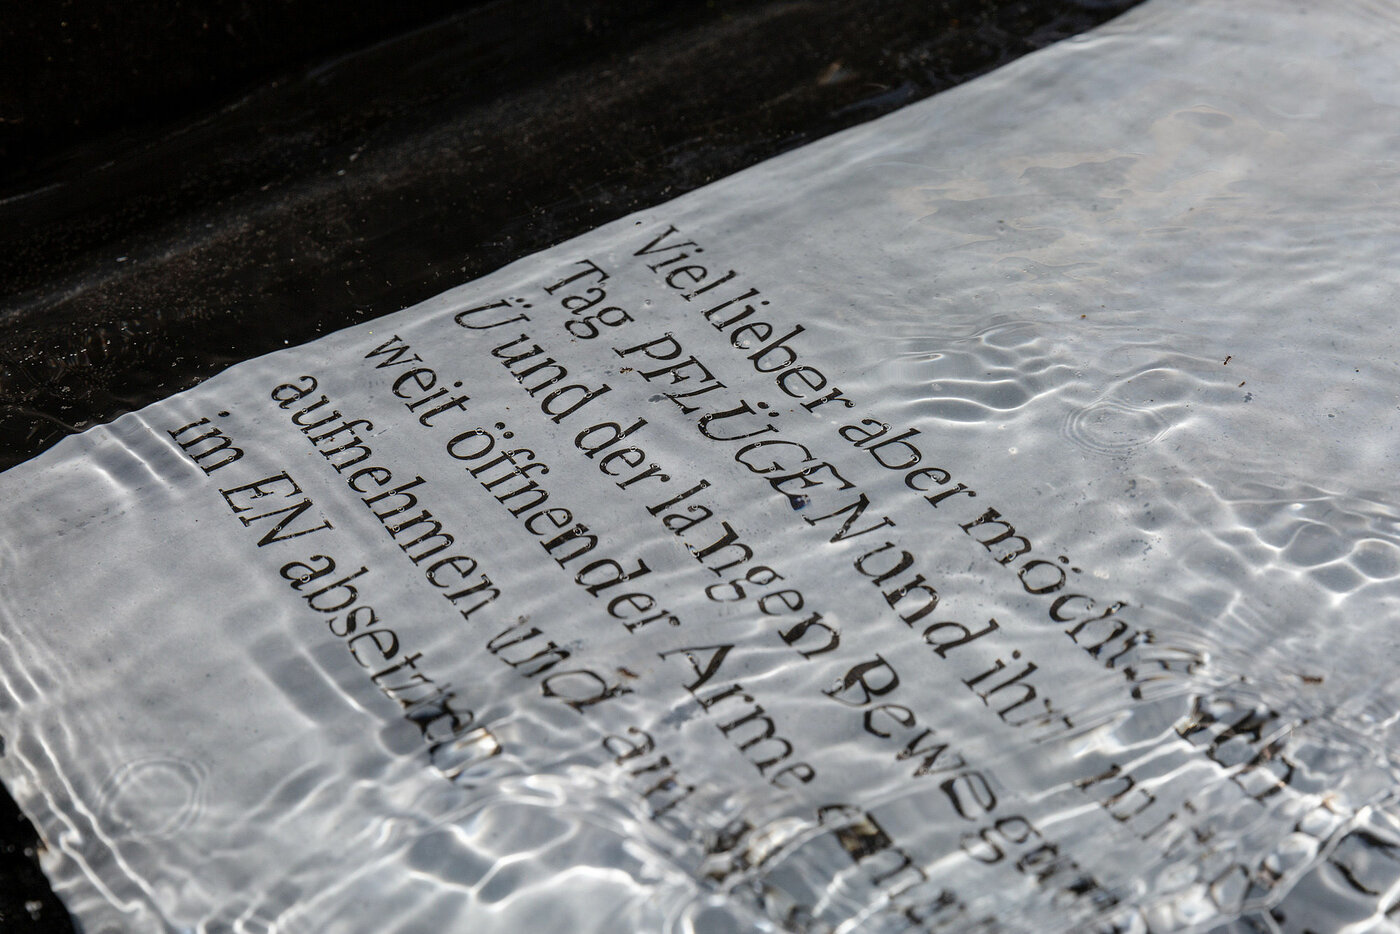 Viel lieber aber möchte ich
Tag PFLÜGEN und ihn mit
Ü und der langen Bewegung
weit öffnender Arme
aufnehmen und
im EN absetzen